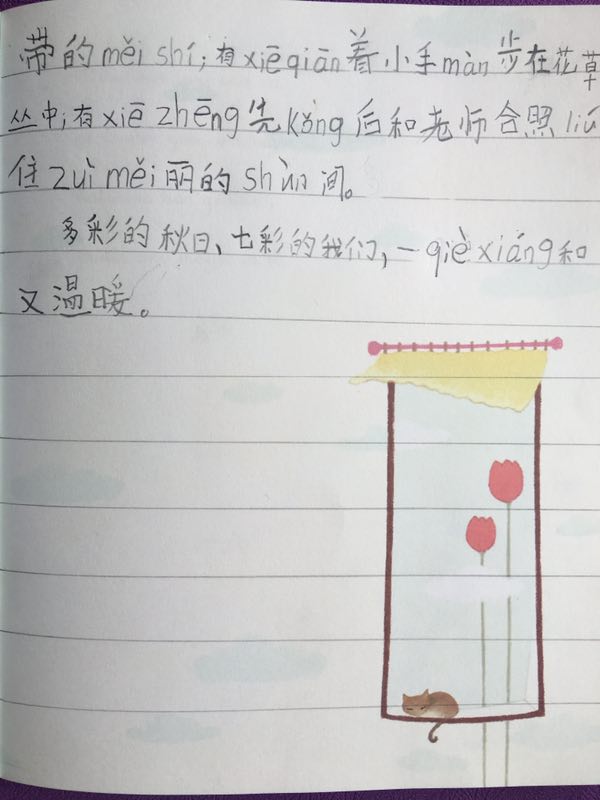 带的měi shí；有xiē qiān着小手màn步在花草
丛中；有xiē zhēng先kǒng后和老师合照liú
住zuì měi丽的shùn间。
多彩的秋日、七彩的我们，一qiè xiáng和
又温暖。